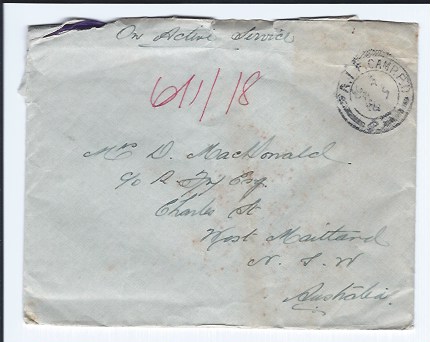 On Active Service
A.I.F. CAMP P.O.
6/1/18
Mrs D. MacDonald.
c/o R Fry Esq.
Charles St
West Maitland
N. S. W
Australia.